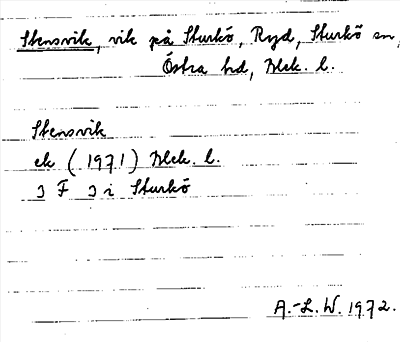 Stensvik, vik på Sturkö, Ryd, Sturkö sn,
Östra hd, Blek. l.
Stensvik
ek (1971) Blek. l.
3 F 3 i Sturkö
A.-L. W. 1972.